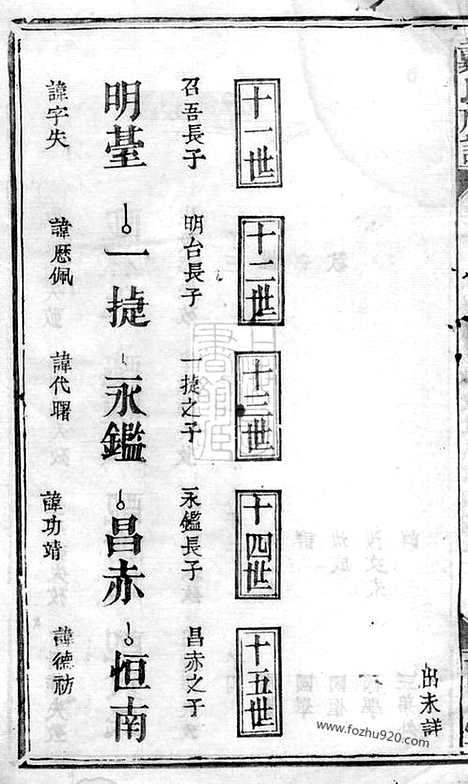 出未詳
十一世
十二世
十三世
十四世
十五世
召吾長子
明台長子
一捷之子
永鑑長子
昌赤之子
明臺
一捷
永鑑
昌赤
恒南
諱字失
諱歷佩
諱代曙
諱功靖
諱德祊
www.fozhu920.com